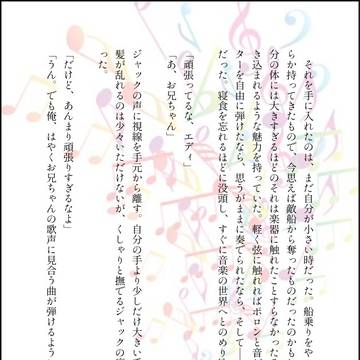 それを手に入れたのは、まだ自分が小さい時だった。船乗りをや
らか持ってきたもので、今思えば敵船から奪ったものだったのかも
分の体には大きすぎるほどのそれは楽器に触れたことすらなかった
き込まれるような魅力を持っていた。軽く弦に触れればポロンと音
ターを自由に弾けたなら、思うがままに奏でられたなら、そして――
だった。寝食を忘れるほどに没頭し、すぐに音楽の世界へとのめり
「頑張ってるな、エディ」
「あ、お兄ちゃん」
ジャックの声に視線を手元から離す。自分の手より少しだけ大きい
髪が乱れるのは少々いただけないが、くしゃりと撫でるジャックの
った。
「だけど、あんまり頑張りすぎるなよ」
「うん。でも俺、はやくお兄ちゃんの歌声に見合う曲が弾けるよう